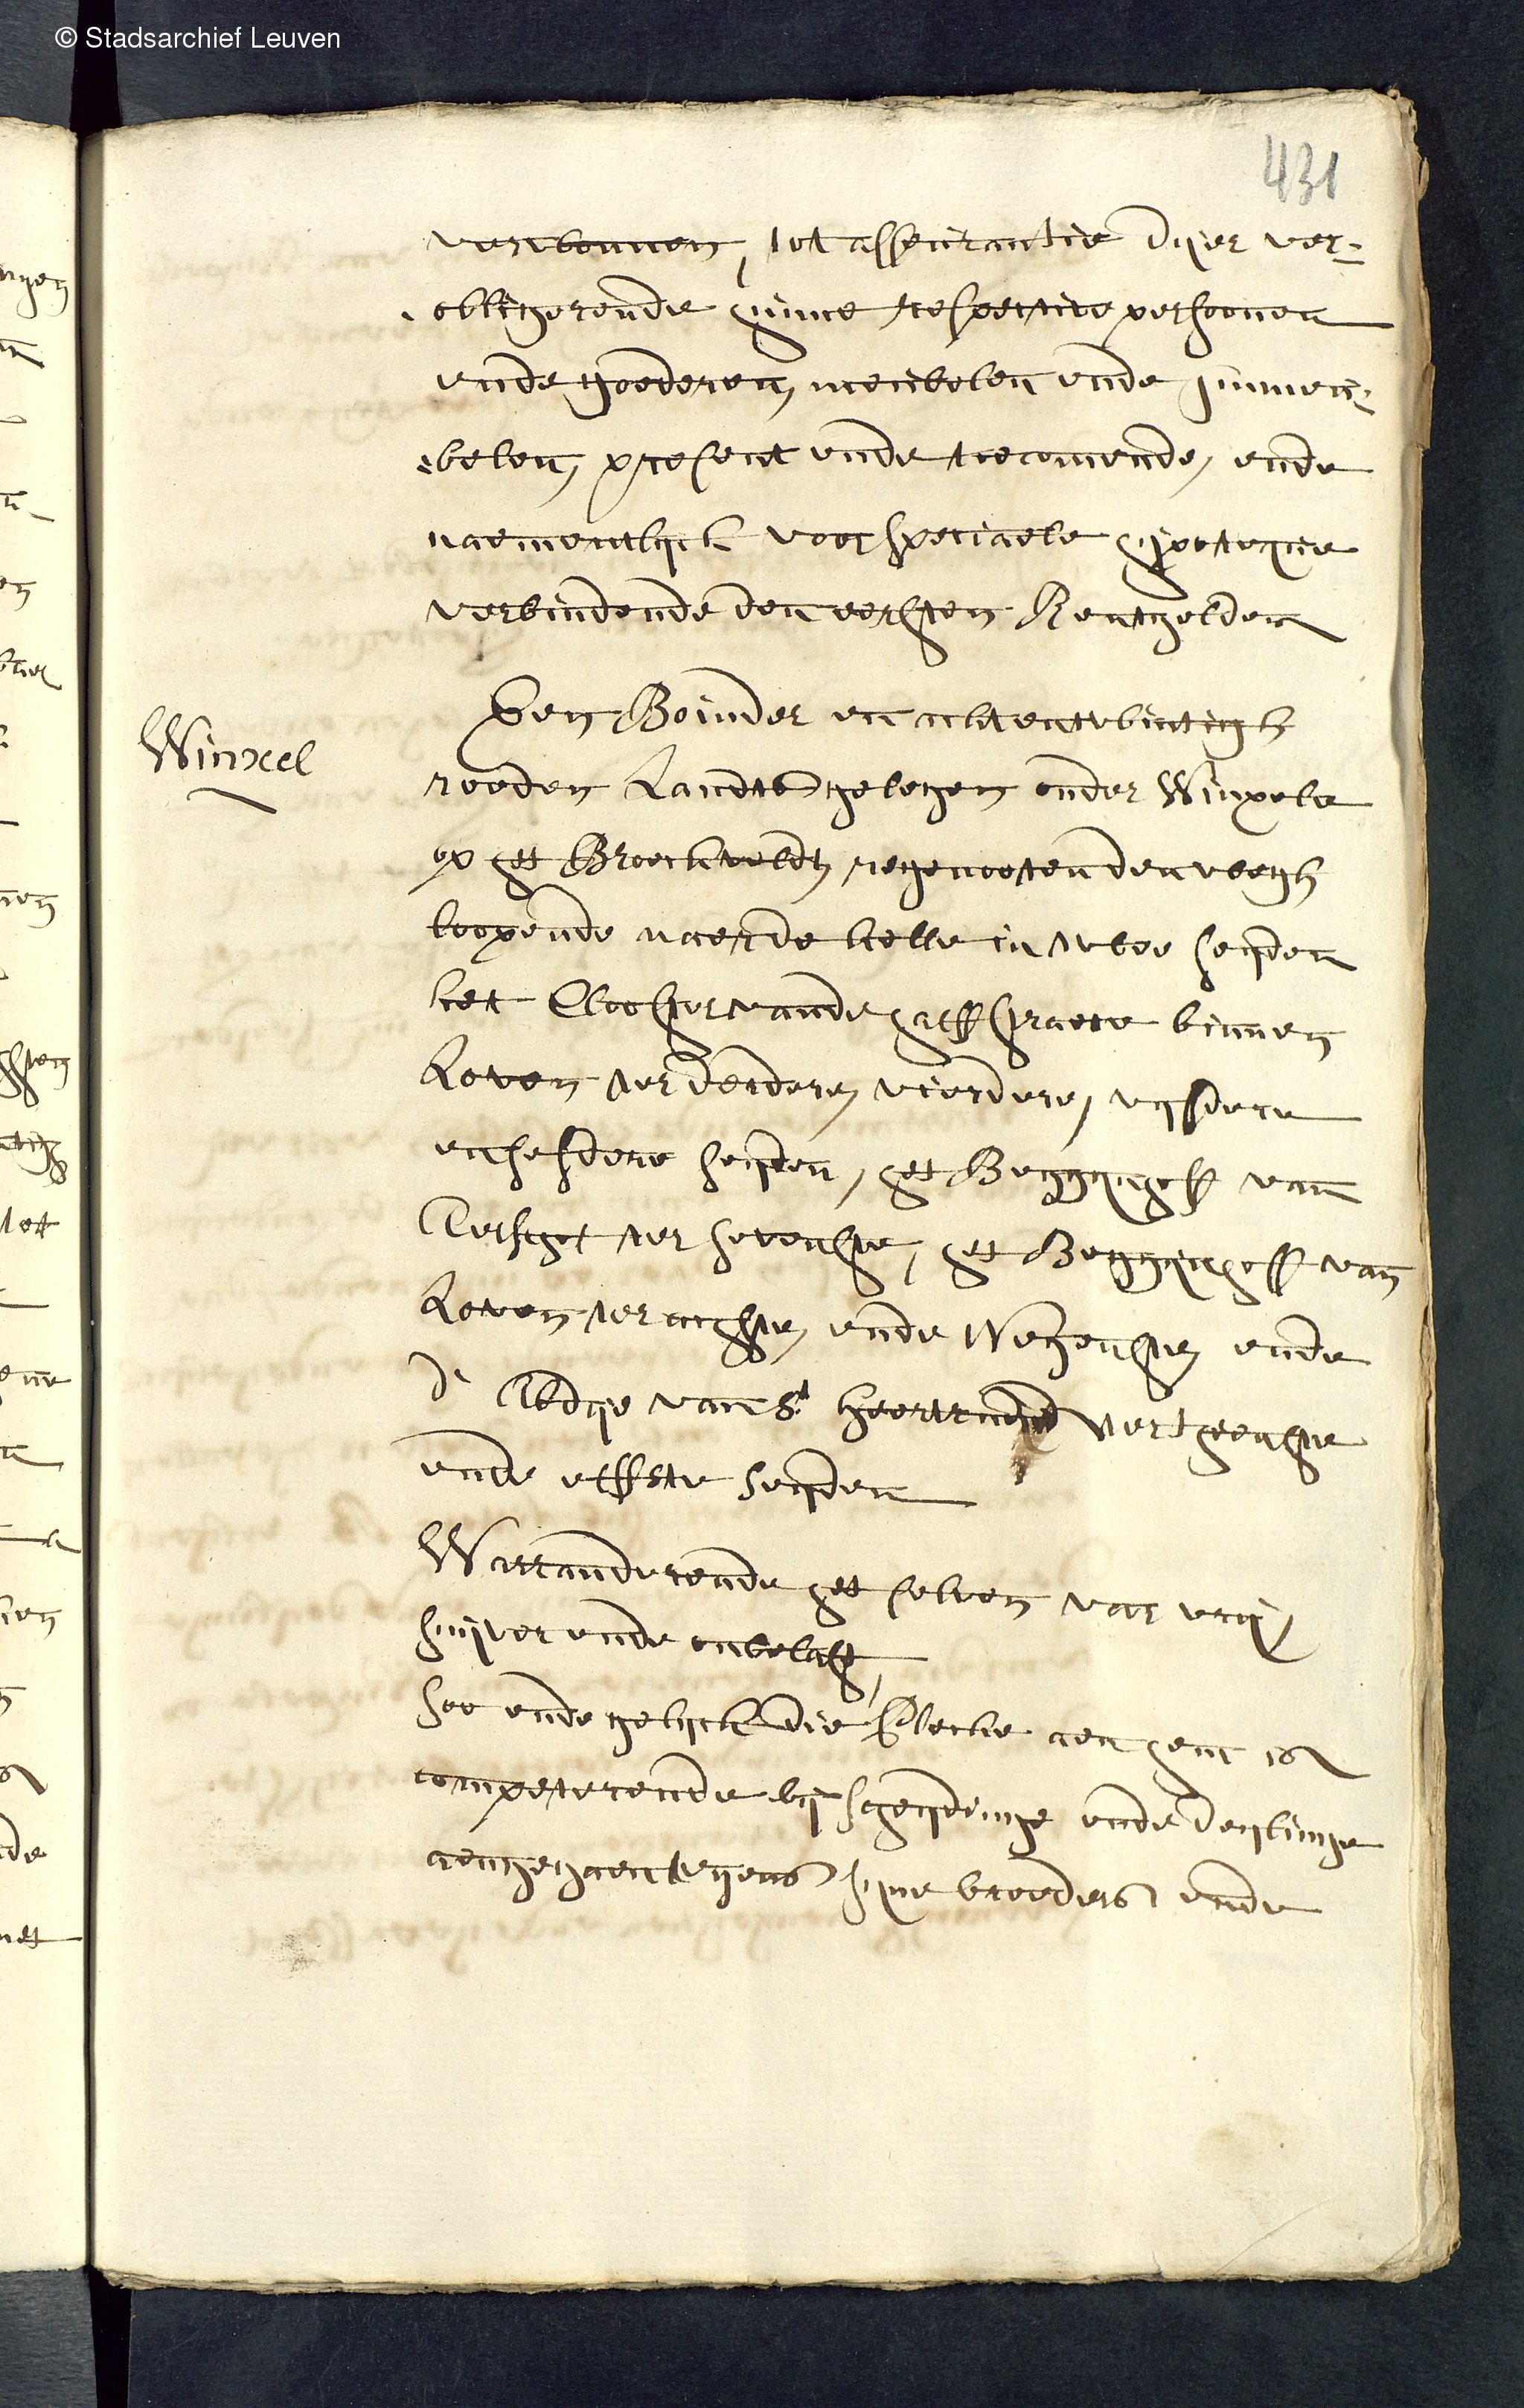 © Stadsarchief Leuven
431
verbonnen, tot asseurantie dyer ver-
obligerende hunne respective persoonen
ende goederen, meubelen ende immeu-
belen, present ende toecomende, ende
naementlyck voor speciaele hypoteque
verbindende den eersten Rentgelder
Winxel
Een Boinder en achtentwintigh
roeden Landts gelegen onder Winxele
op het Broeckveldt, regenooten den wegh
loopende naer de kelle in twee seyden
het Clooster vande halffstraete binnen
Loven ter derdere, vierdere, vyffdere
en sesdere seyden, het Begynhoff van
Aerschot ter sevenste, het Begynhoff van
Loven ter achste, ende Negenste, ende
d' Abdye van St Geertruydt ter thienste
ende elffste seyden
Warranderende het selven var vry
suyver ende onbelast,
soo ende gelyck die plecke aen hem is
competerende by scheydinge ende deylinge
aengegaen tegens syne broeders ende